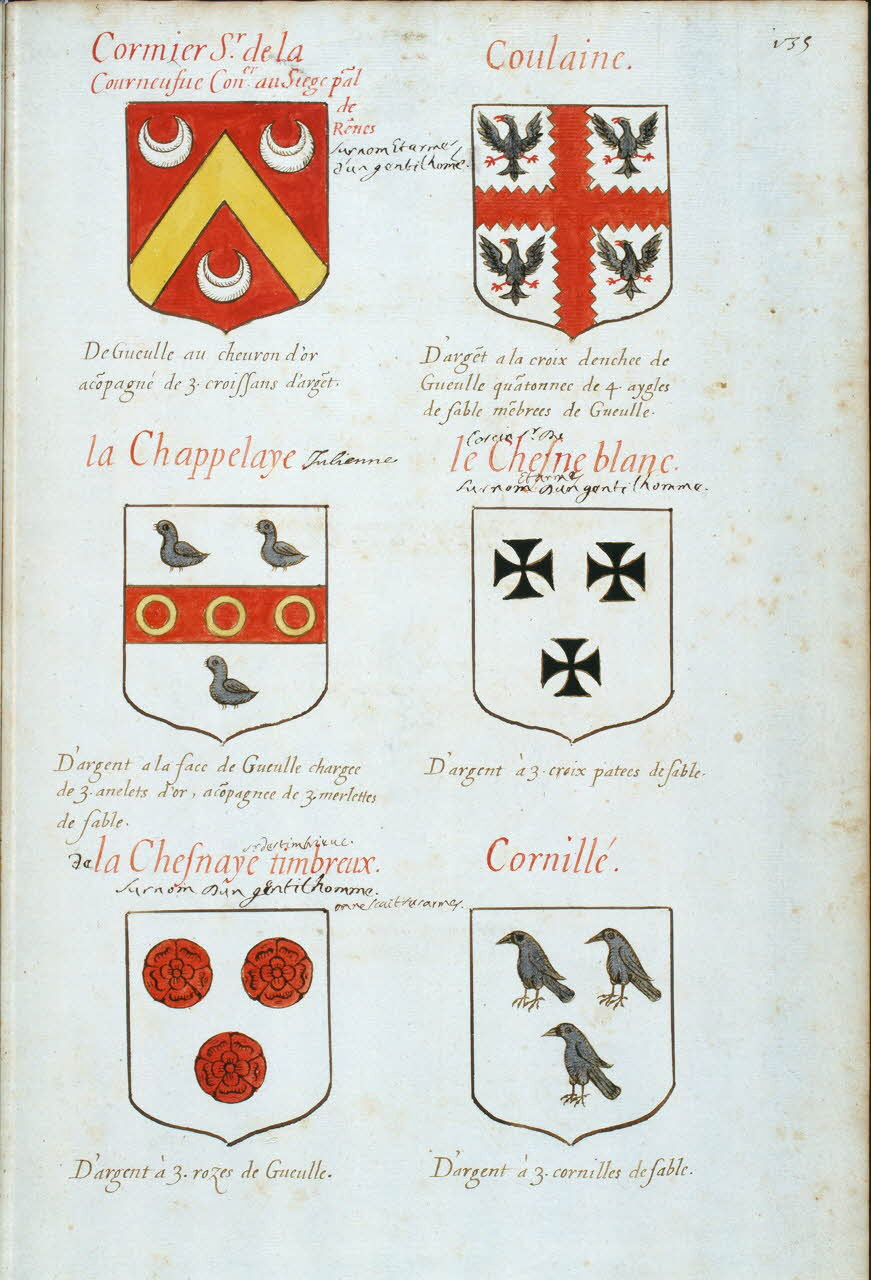 135
Cormier Sr. de la
Courneufue Coner. au Siege pãl
de
Rẽnes
surnom Et armes
d'un gentilhome.
De Gueulle au cheuron d'or
acõpagné de 3. croissans d'argẽt.
Coulaine.
D'argẽt a la croix denchee de
Gueulle quãtonnee de 4. aygles
de sable mẽbrees de Gueulle.
la Chappelaye Julienne
D'argent a la face de Gueulle chargee
de 3. anelets d'or, acõpagnee de 3. merlettes
de sable.
sr. de
le Chesne blanc.
Et armes
surnom d'un gentilhomme.
D'argent à 3. croix patees de sable.
de la Chesnaye timbreux.
surnõm d'un gentilhomme.
on ne scait ses armes.
D'argent à 3. rozes de Gueulle.
Cornillé.
D'argent à 3. cornilles de sable.